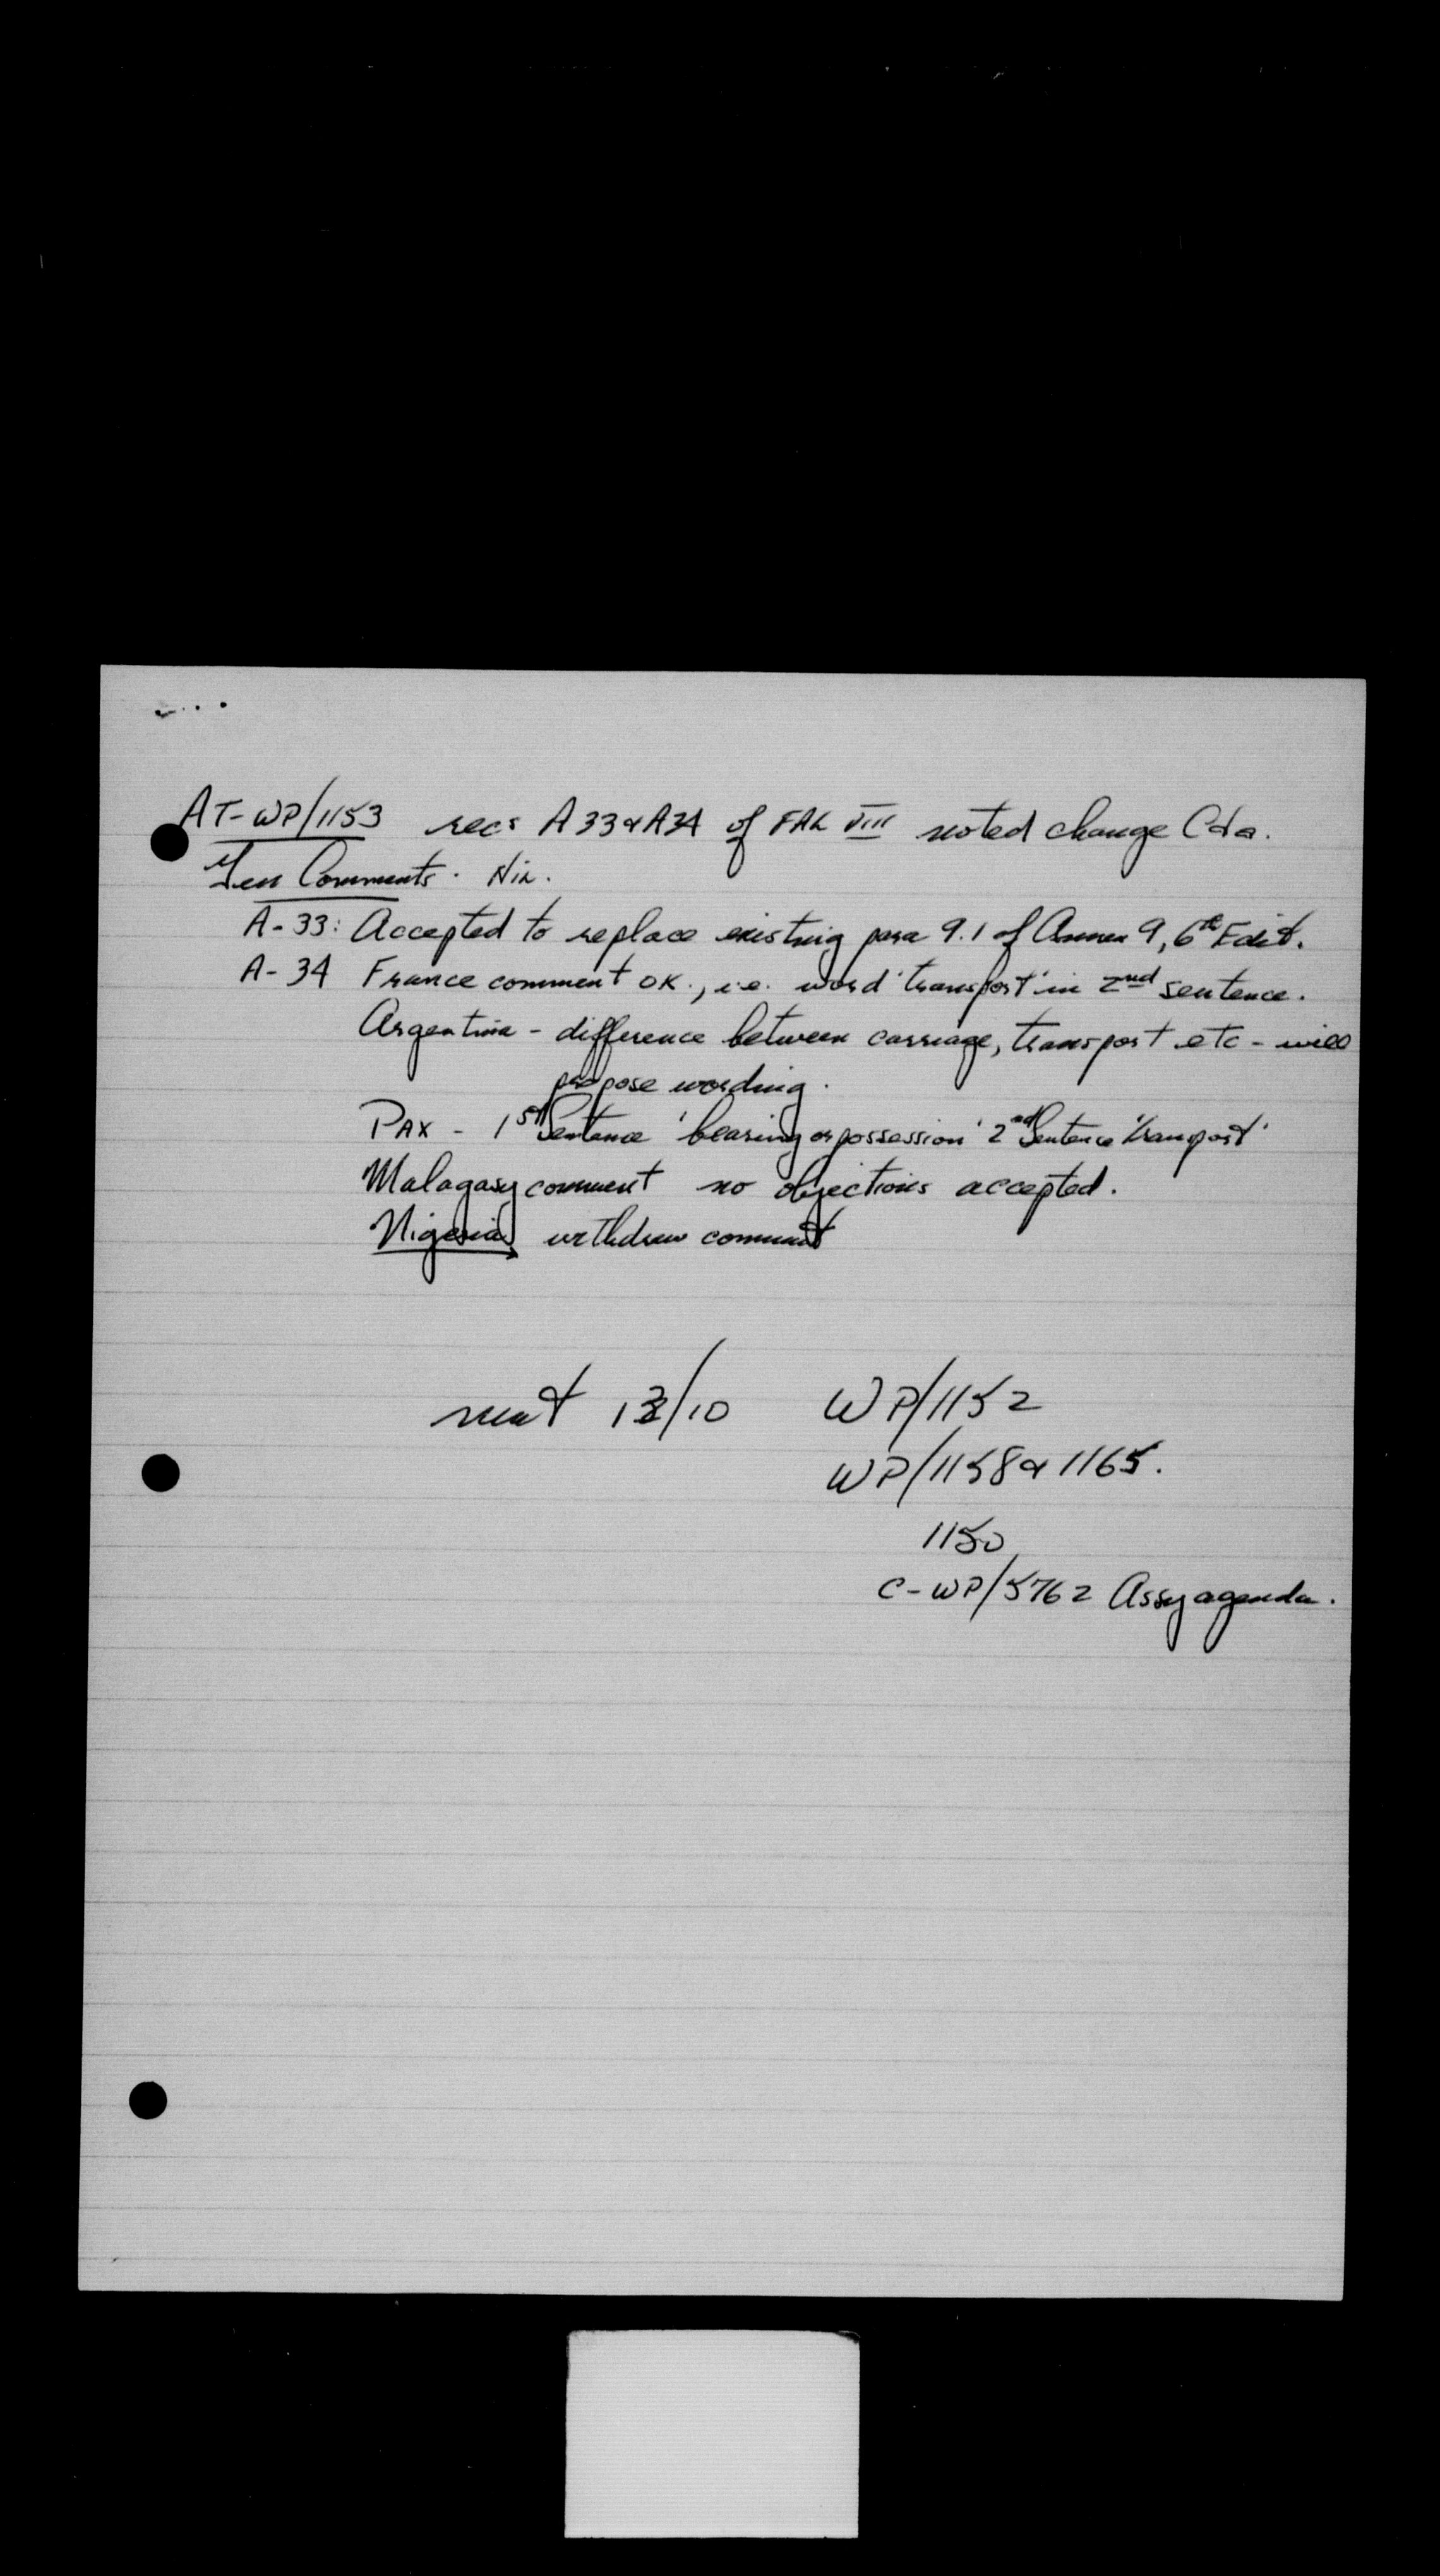 AT-WP/1153 recs A33 & A34 of FAL VIII noted change Cda.
Gen Comments. Nil.
A-33: Accepted to replace existing para 9.1 of Annex 9, 6th Edit.
A-34 France comment OK., i.e. word 'transport' in 2nd sentence.
Argentina - difference between carriage, transport etc - will
propose wording.
PAX - 1st Sentence 'bearing or possession' 2nd Sentence 'transport'
Malagasy comment no objections accepted.
Nigeria withdraw comment
next 13/10 WP/1152
WP/1158 & 1165.
1150
C-WP/5762 Assy agenda.